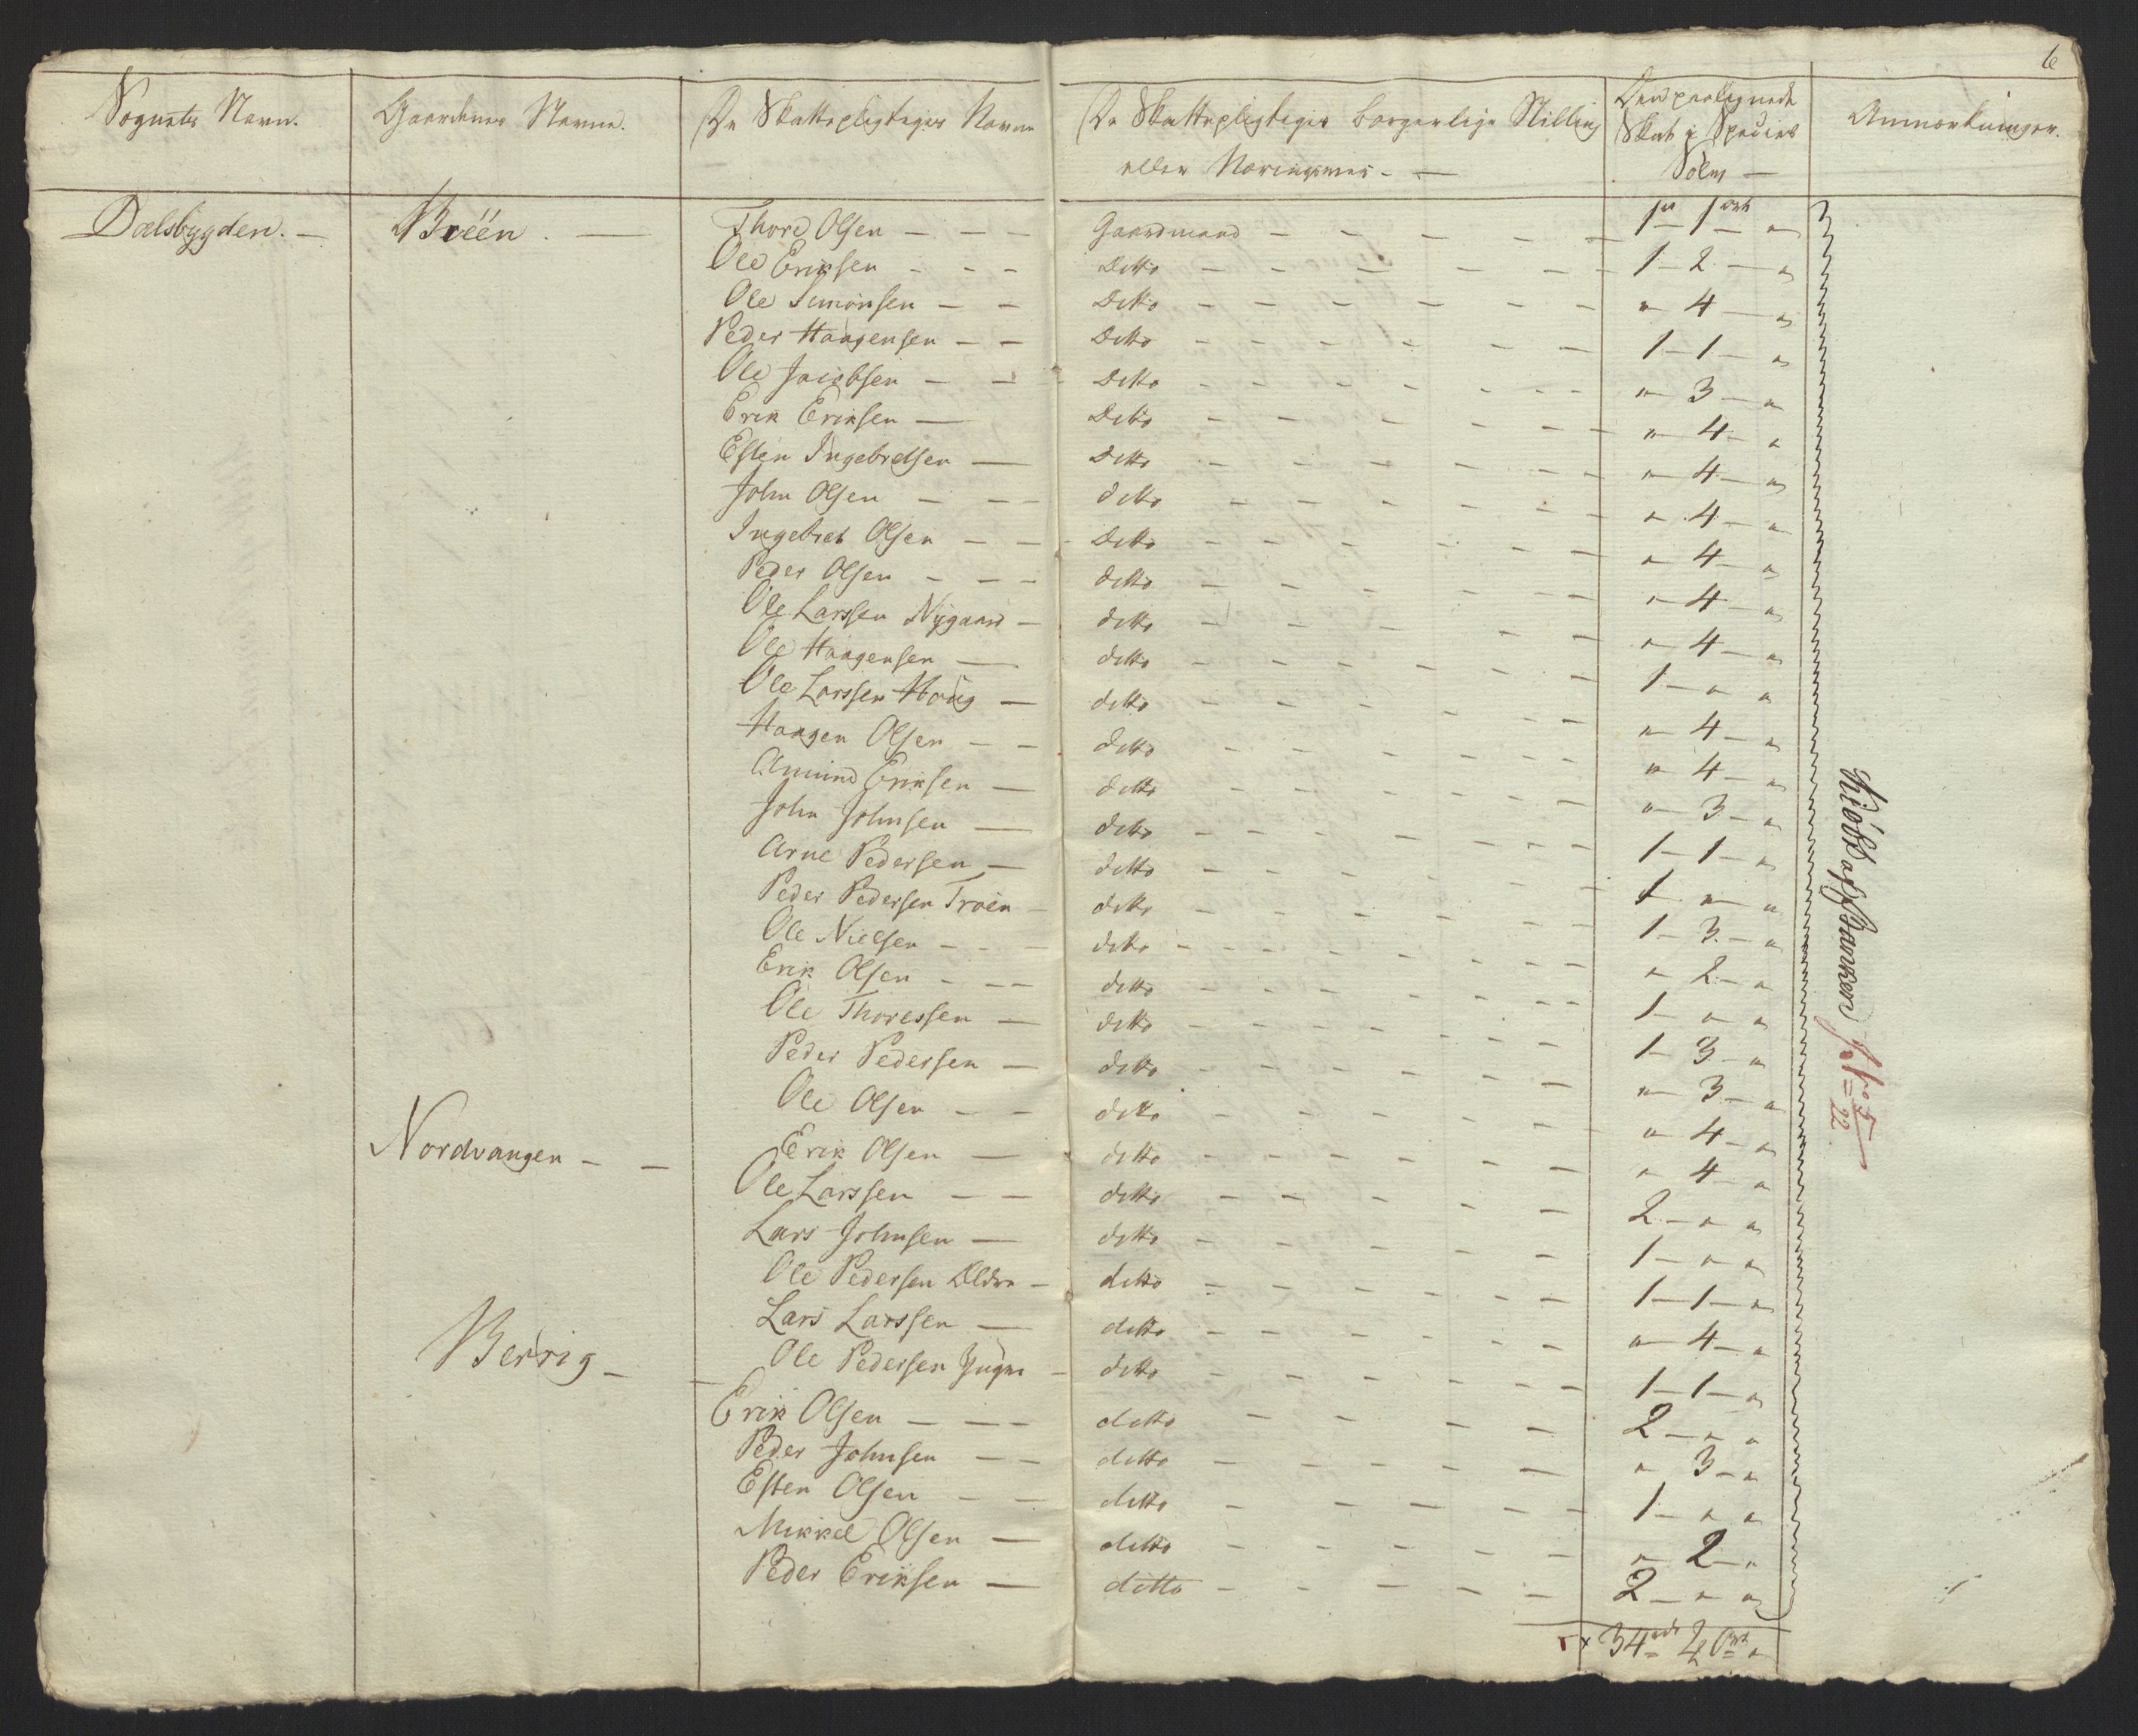 6
Sognets Navn. Gaardenes Navne. De Skattepligtiges Navne De Skattepligtiges borgerlige Stilling eller Næringsvei - Den paalignede Skat i Species Sølv - Anmærkninger.
Dalsbygden. - Brëen. - Thore Olsen - - - Gaardmand - 1 - 1 - "
Ole Eriksen - - - Ditto - 1 - 2 - "
Ole Simonsen - - Ditto - " - 4 - "
Peder Haagensen - - Ditto - 1 - 1 - "
Ole Jacobsen - - Ditto - " - 3 - "
Erik Eriksen - Ditto - " - 4 - "
Esten Ingebretsen - Ditto - " - 4 - "
John Olsen - - - ditto - " - 4 - "
Ingebret Olsen - - Ditto - " - 4 - "
Peder Olsen - - - ditto - " - 4 - "
Ole Larssen Nÿgaard - ditto - " - 4 - "
Ole Haagensen - ditto - 1 - " - "
Ole Larssen Haug - ditto - " - 4 - "
Haagen Olsen - - ditto - " - 4 - "
Amund Eriksen - ditto - " - 3 - "
John Johnsen - ditto - 1 - 1 - "
Arne Pedersen - ditto - 1 - " - "
Peder Pedersen Troen - ditto - 1 - 3 - "
Ole Nielsen - - - ditto - " - 2 - "
Erik Olsen - - - ditto - 1 - " - "
Ole Thoressen - ditto - 1 - 3 - "
Peder Pedersen - ditto - " - 3 - "
Ole Olsen - - ditto - " - 4 - "
Nordvangen - - Erik Olsen - ditto - " - 4 - "
Ole Larssen - - ditto - 2 - " - "
Lars Johnsen - ditto - 1 - " - "
Ole Pedersen Eldre - ditto - 1 - 1 - "
Lars Larssen - ditto - " - 4 - "
Berrig - - Ole Pedersen Yngre - ditto - 1 - 1 - "
Erik Olsen - - - ditto - 2 - " - "
Peder Johnsen - - ditto - " - 3 - "
Esten Olsen - - ditto - 1 - " - "
Mikkel Olsen - ditto - " - 2 - "
Peder Eriksen - ditto - 2 - " - "
34